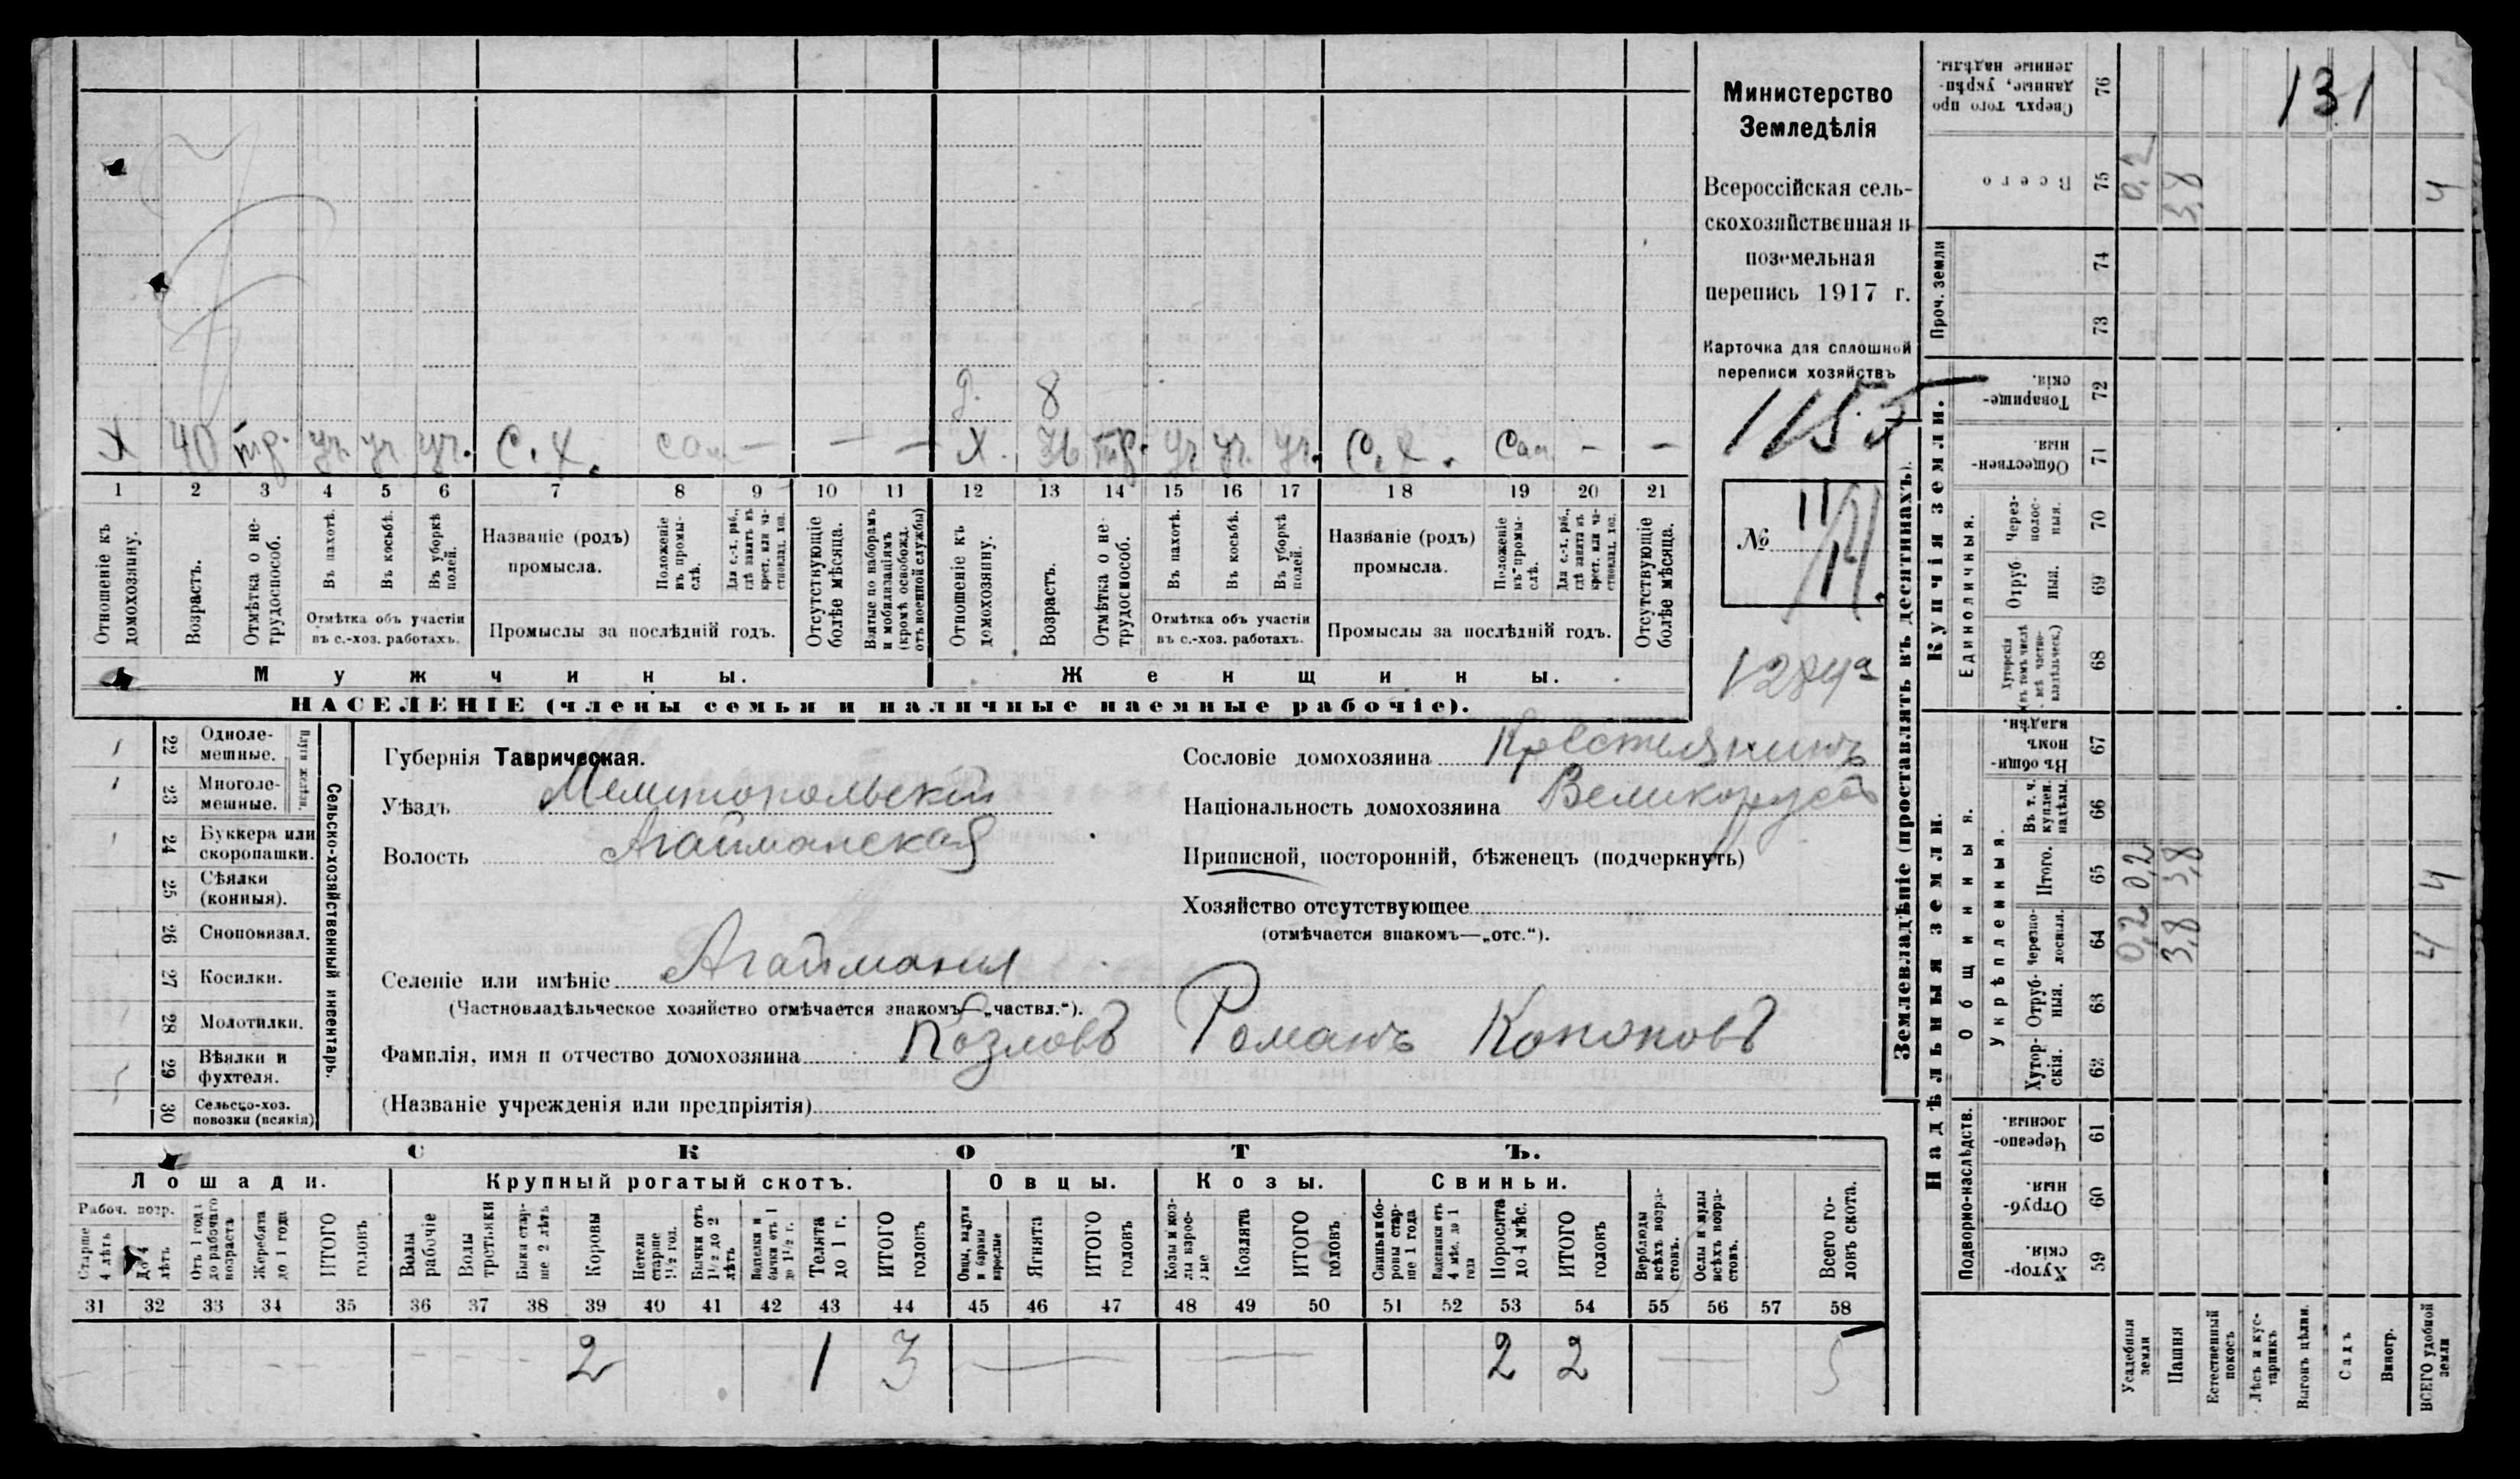 131
Министерство
Земледѣлія
Всероссійская сель-
скохозяйственная и
поземельная
перепись 1917 г.
Карточка для сплошной
переписи хозяйствъ
1155
№ 11
д. 8
X 40 тр. уч. уч. уч. С. х. сам — — — X. 36 тр. уч. уч. уч. С. х. сам — —
1 2 3 4 5 6 7 8 9 10 11 12 13 14 15 16 17 18 19 20 21
Отношеніе къ домохозяину.
Возрастъ.
Отмѣтка о не-трудоспособ.
Въ пахотѣ.
Въ косьбѣ.
Въ уборкѣ полей.
Отмѣтка объ участіи
въ с.-хоз. работахъ.
Названіе (родъ)
промысла.
Положеніе въ промы-слѣ.
Для с.-х. раб., гдѣ занятъ въ крест. или ча-стновлад. хоз.
Промыслы за послѣдній годъ.
Отсутствующіе болѣе мѣсяца.
Взятые по наборамъ и мобилизаціямъ (кромѣ освобожд. отъ военной службы)
Отношеніе къ домохозяину.
Возрастъ.
Отмѣтка о не-трудоспособ.
Въ пахотѣ.
Въ косьбѣ.
Въ уборкѣ полей.
Отмѣтка объ участіи
въ с.-хоз. работахъ.
Названіе (родъ)
промысла.
Положеніе въ промы-слѣ.
Для с.-х. раб., гдѣ занята въ крест. или ча-стновлад. хоз.
Промыслы за послѣдній годъ.
Отсутствующіе болѣе мѣсяца.
Мужчины. Женщины.
НАСЕЛЕНІЕ (члены семьи и наличные наемные рабочіе).
Сельско-хозяйственный инвентарь.
Плуги желѣзн.
22 Одноле-мешные.
23 Многоле-мешные.
24 Буккера или скоропашки.
25 Сѣялки (конныя).
26 Сноповязал.
27 Косилки.
28 Молотилки.
29 Вѣялки и фухтеля.
30 Сельско-хоз. повозки (всякія)
Губернія Таврическая.
Уѣздъ Мелитопольскій
Волость Агайманская
Сословіе домохозяина Крестьянинъ
Національность домохозяина Великоруссъ
Приписной, посторонній, бѣженецъ (подчеркнуть)
Хозяйство отсутствующее
(отмѣчается знакомъ—„отс.“).
Селеніе или имѣніе Агайманы
(Частновладѣльческое хозяйство отмѣчается знакомъ—„частвл.“).
Фамилія, имя и отчество домохозяина Козловъ Романъ Кононовъ
(Названіе учрежденія или предпріятія)
СКОТЪ.
Лошади. Крупный рогатый скотъ. Овцы. Козы. Свиньи.
Рабоч. возр.
Старше 4 лѣтъ
До 4 лѣтъ
Отъ 1 года до рабочаго возраста
Жеребята до 1 года
ИТОГО головъ
Волы рабочіе
Волы третьяки
Быки стар-ше 2 лѣтъ
Коровы
Нетели старше 1½ год.
Бычки отъ 1½ до 2 лѣтъ
Подтелки и бычки отъ 1 до 1½ г.
Телята до 1 г.
ИТОГО головъ
Овцы, валухи и бараны взрослые
Ягнята
ИТОГО головъ
Козы и коз-лы взрос-лые
Козлята
ИТОГО головъ
Свиньи и бо-ровы стар-ше 1 года
Подсвинки отъ 4 мѣс. до 1 года
Поросята до 4 мѣс.
ИТОГО головъ
Верблюды всѣхъ возра-стовъ.
Ослы и мулы всѣхъ возра-стовъ.
Всего го-ловъ скота.
31 32 33 34 35 36 37 38 39 40 41 42 43 44 45 46 47 48 49 50 51 52 53 54 55 56 57 58
2 1 3 2 2 5
Землевладѣніе (проставлять въ десятинахъ).
Надѣльныя земли. Купчія земли. Проч. земли
Подворно-наслѣдств.
Общинныя.
Укрѣпленныя.
Единоличныя.
Сверхъ того про-данные, укрѣп-ленные надѣлы. 76
Всего 75 0,2 3,8 4
74
73
Товарище-скія. 72
Обществен-ныя. 71
Через-полос-ныя. 70
Отруб-ныя. 69
Хуторскія (въ томъ числѣ всѣ частно-владѣльческ.) 68
Въ общин-номъ владѣн. 67
Въ т. ч. куплен. надѣлы. 66
Итого. 65 0,2 3,8 4
Черезпо-лосныя. 64 0,2 3,8 4
Отруб-ныя. 63
Хутор-скія. 62
Черезпо-лосныя. 61
Отруб-ныя. 60
Хутор-скія. 59
Усадебныя земли
Пашня
Естественный покосъ
Лѣсъ и кус-тарникъ
Выгонъ цѣлин.
Садъ
Виногр.
ВСЕГО удобной земли